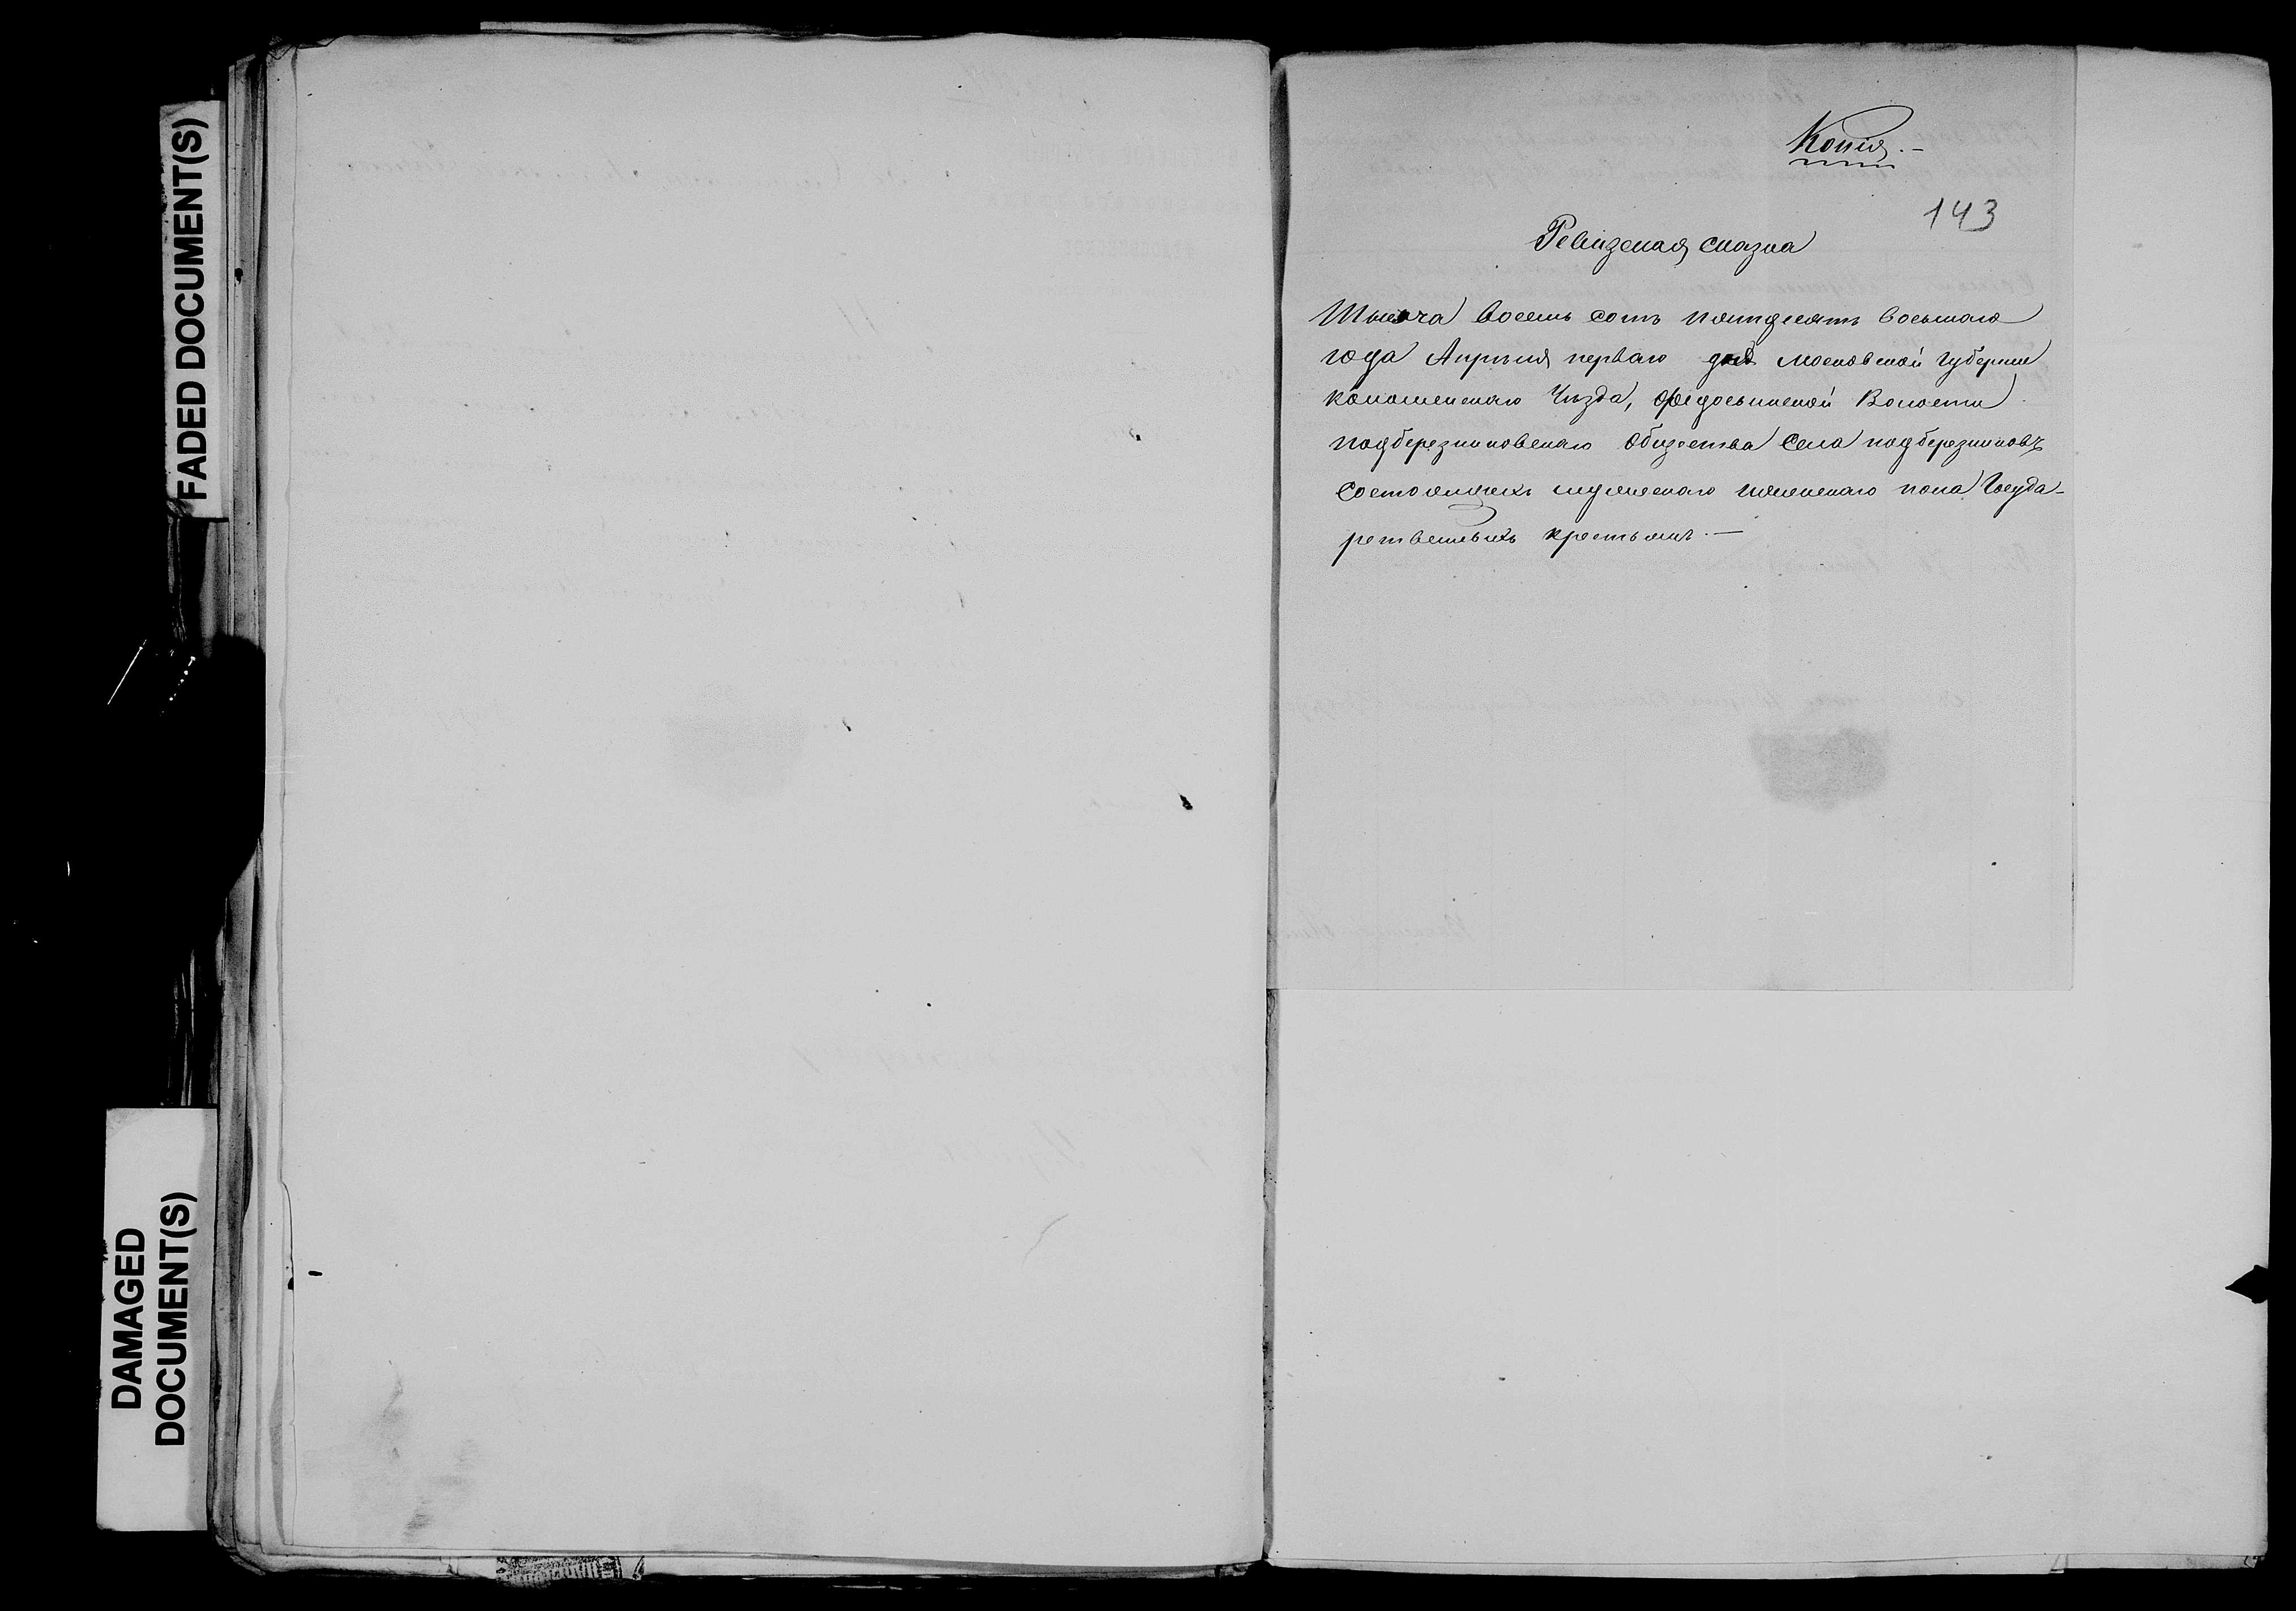 FADED DOCUMENT(S)
DAMAGED
DOCUMENT(S)
Копія.-
143
Ревизская сказка
Тысяча восемь сотъ пятидесятъ восьмаго
года Апрѣля перваго дня Московской Губерніи
Коломенскаго Уѣзда, Федосьинской Волости
подберезниковскаго Общества Села подберезниковъ
Состоящихъ мужескаго женскаго пола Госуда-
рственныхъ крестьянъ.—